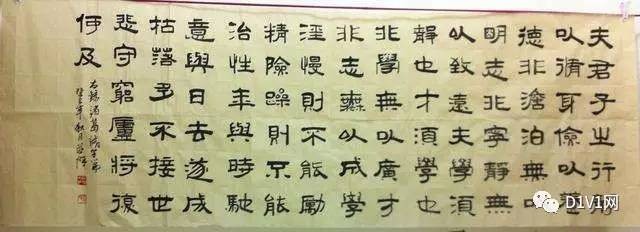 夫君子之行靜
以脩身儉以養
德非澹泊無以
明志非寧靜無
以致遠夫學須
靜也才須學也
非學無以廣才
非志無以成學
淫慢則不能勵
精險躁則不能
治性年與時馳
意與日去遂成
枯落多不接世
悲守窮廬將復
何及
右錄諸葛誡子書
癸巳年秋月
D1V1网